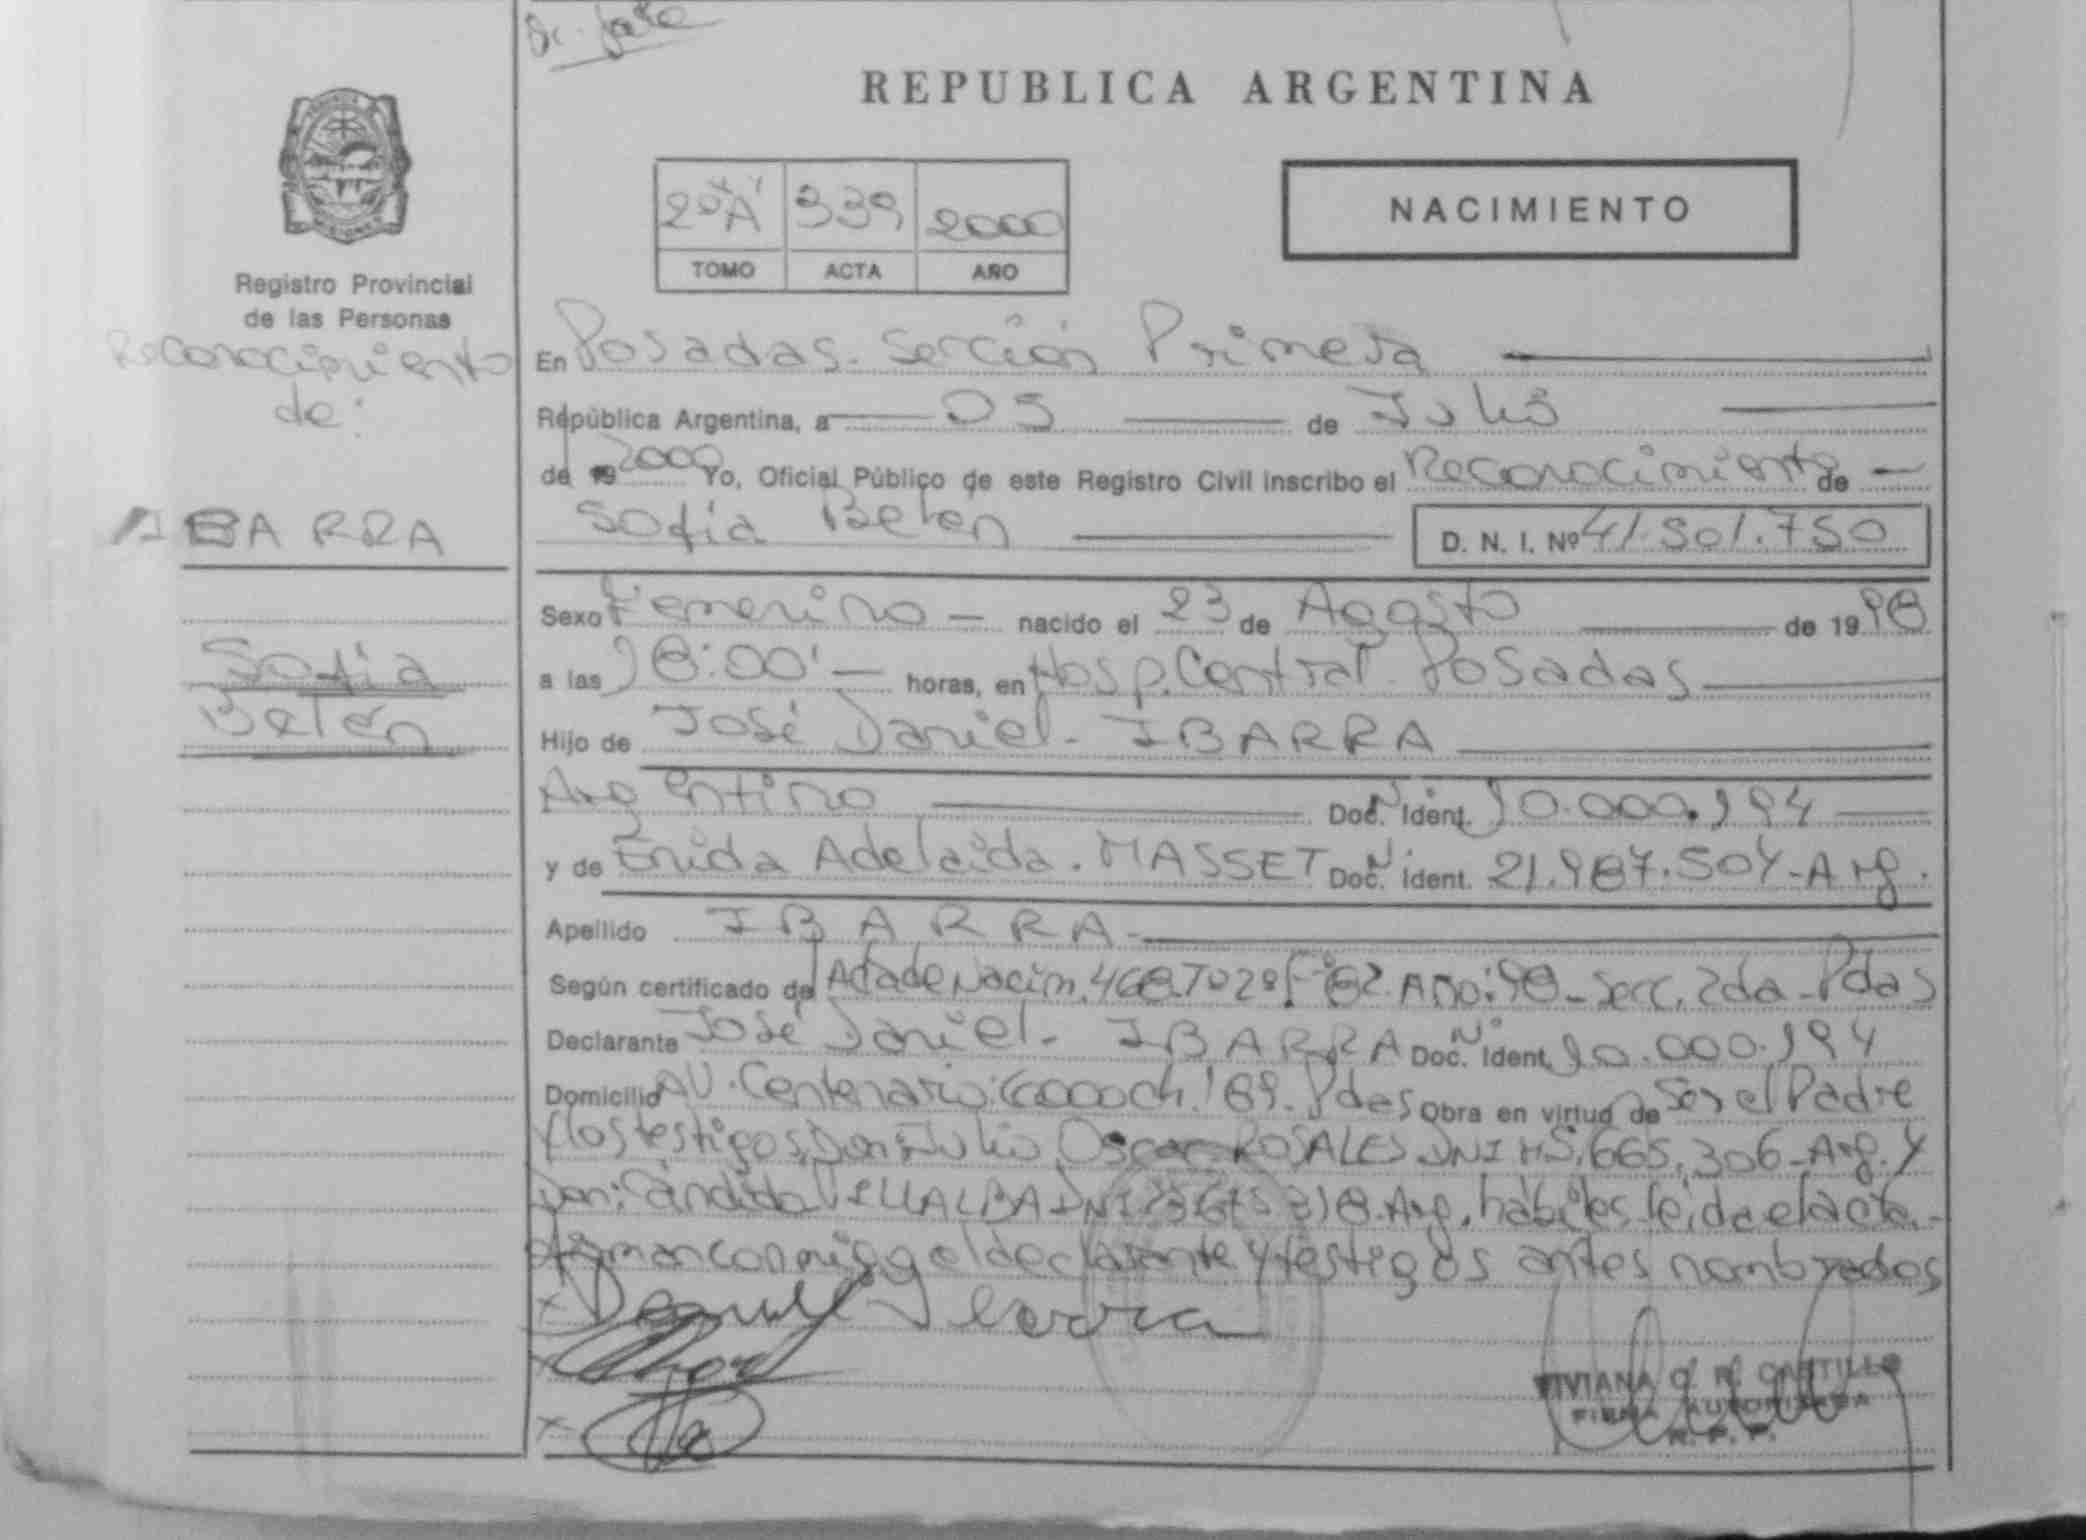 REPUBLICA ARGENTINA
2º "A" 339 2000
TOMO ACTA AÑO
NACIMIENTO
Registro Provincial
de las Personas
Reconocimiento
de:
IBARRA
Sofia
Belén
En Posadas. Sección Primera
República Argentina, a 05 de Julio
de 19 2000 Yo, Oficial Público de este Registro Civil inscribo el Reconocimiento de
Sofia Belén D. N. I. Nº 41.501.750
Sexo Femenino nacido el 23 de Agosto de 19 98
a las 18:00' horas, en Hosp. Central. Posadas
Hijo de José Daniel. IBARRA
Argentino Doc. Nº Ident. 10.000.194
y de Enida Adelaida. MASSET Doc. Nº Ident. 21.987.504-Arg.
Apellido IBARRA
Según certificado de Acta de Nacim. 468. Tº 2º Fº 82. Año: 98 - Secc. 2da - Pdas
Declarante José Daniel. IBARRA Doc. Nº Ident. 10.000.194
Domicilio AV. Centenario: Ch. 189. Pdas Obra en virtud de Ser el Padre
Y los testigos, Don: Julio Oscar ROSALES DNI 665.306-Arg. Y
Don: Cándido VILLALBA DNI Arg. hábiles. leída el acta.
firman conmigo el declarante y testigos antes nombrados
VIVIANA C. R. CASTILLO
FIRMA AUTORIZADA
R. P. P.